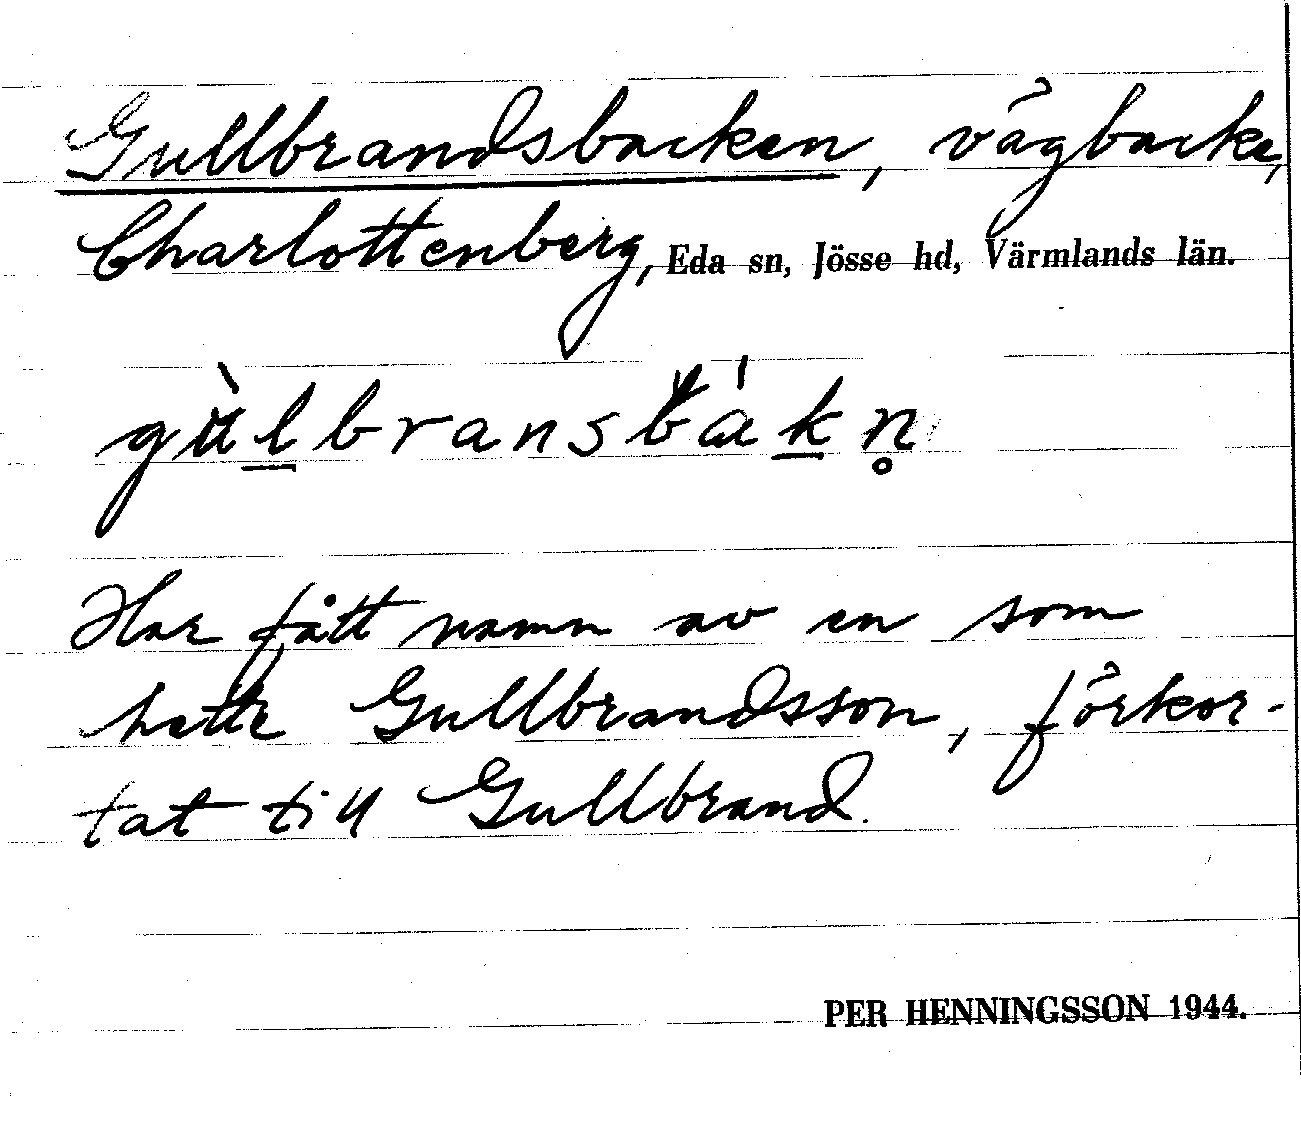 Gullbrandsbacken, vägbacke,
Charlottenberg, Eda sn, Jösse hd, Värmlands län.
gu̇̀l̲bransbák̲n̥
Har fått namn av en som
hette Gullbrandsson, förkor-
tat till Gullbrand.
PER HENNINGSSON 1944.